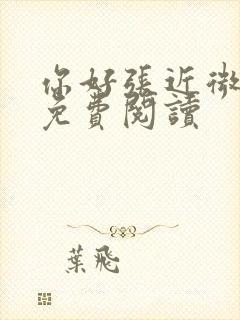 你好張近微
免費閱讀
葉飛